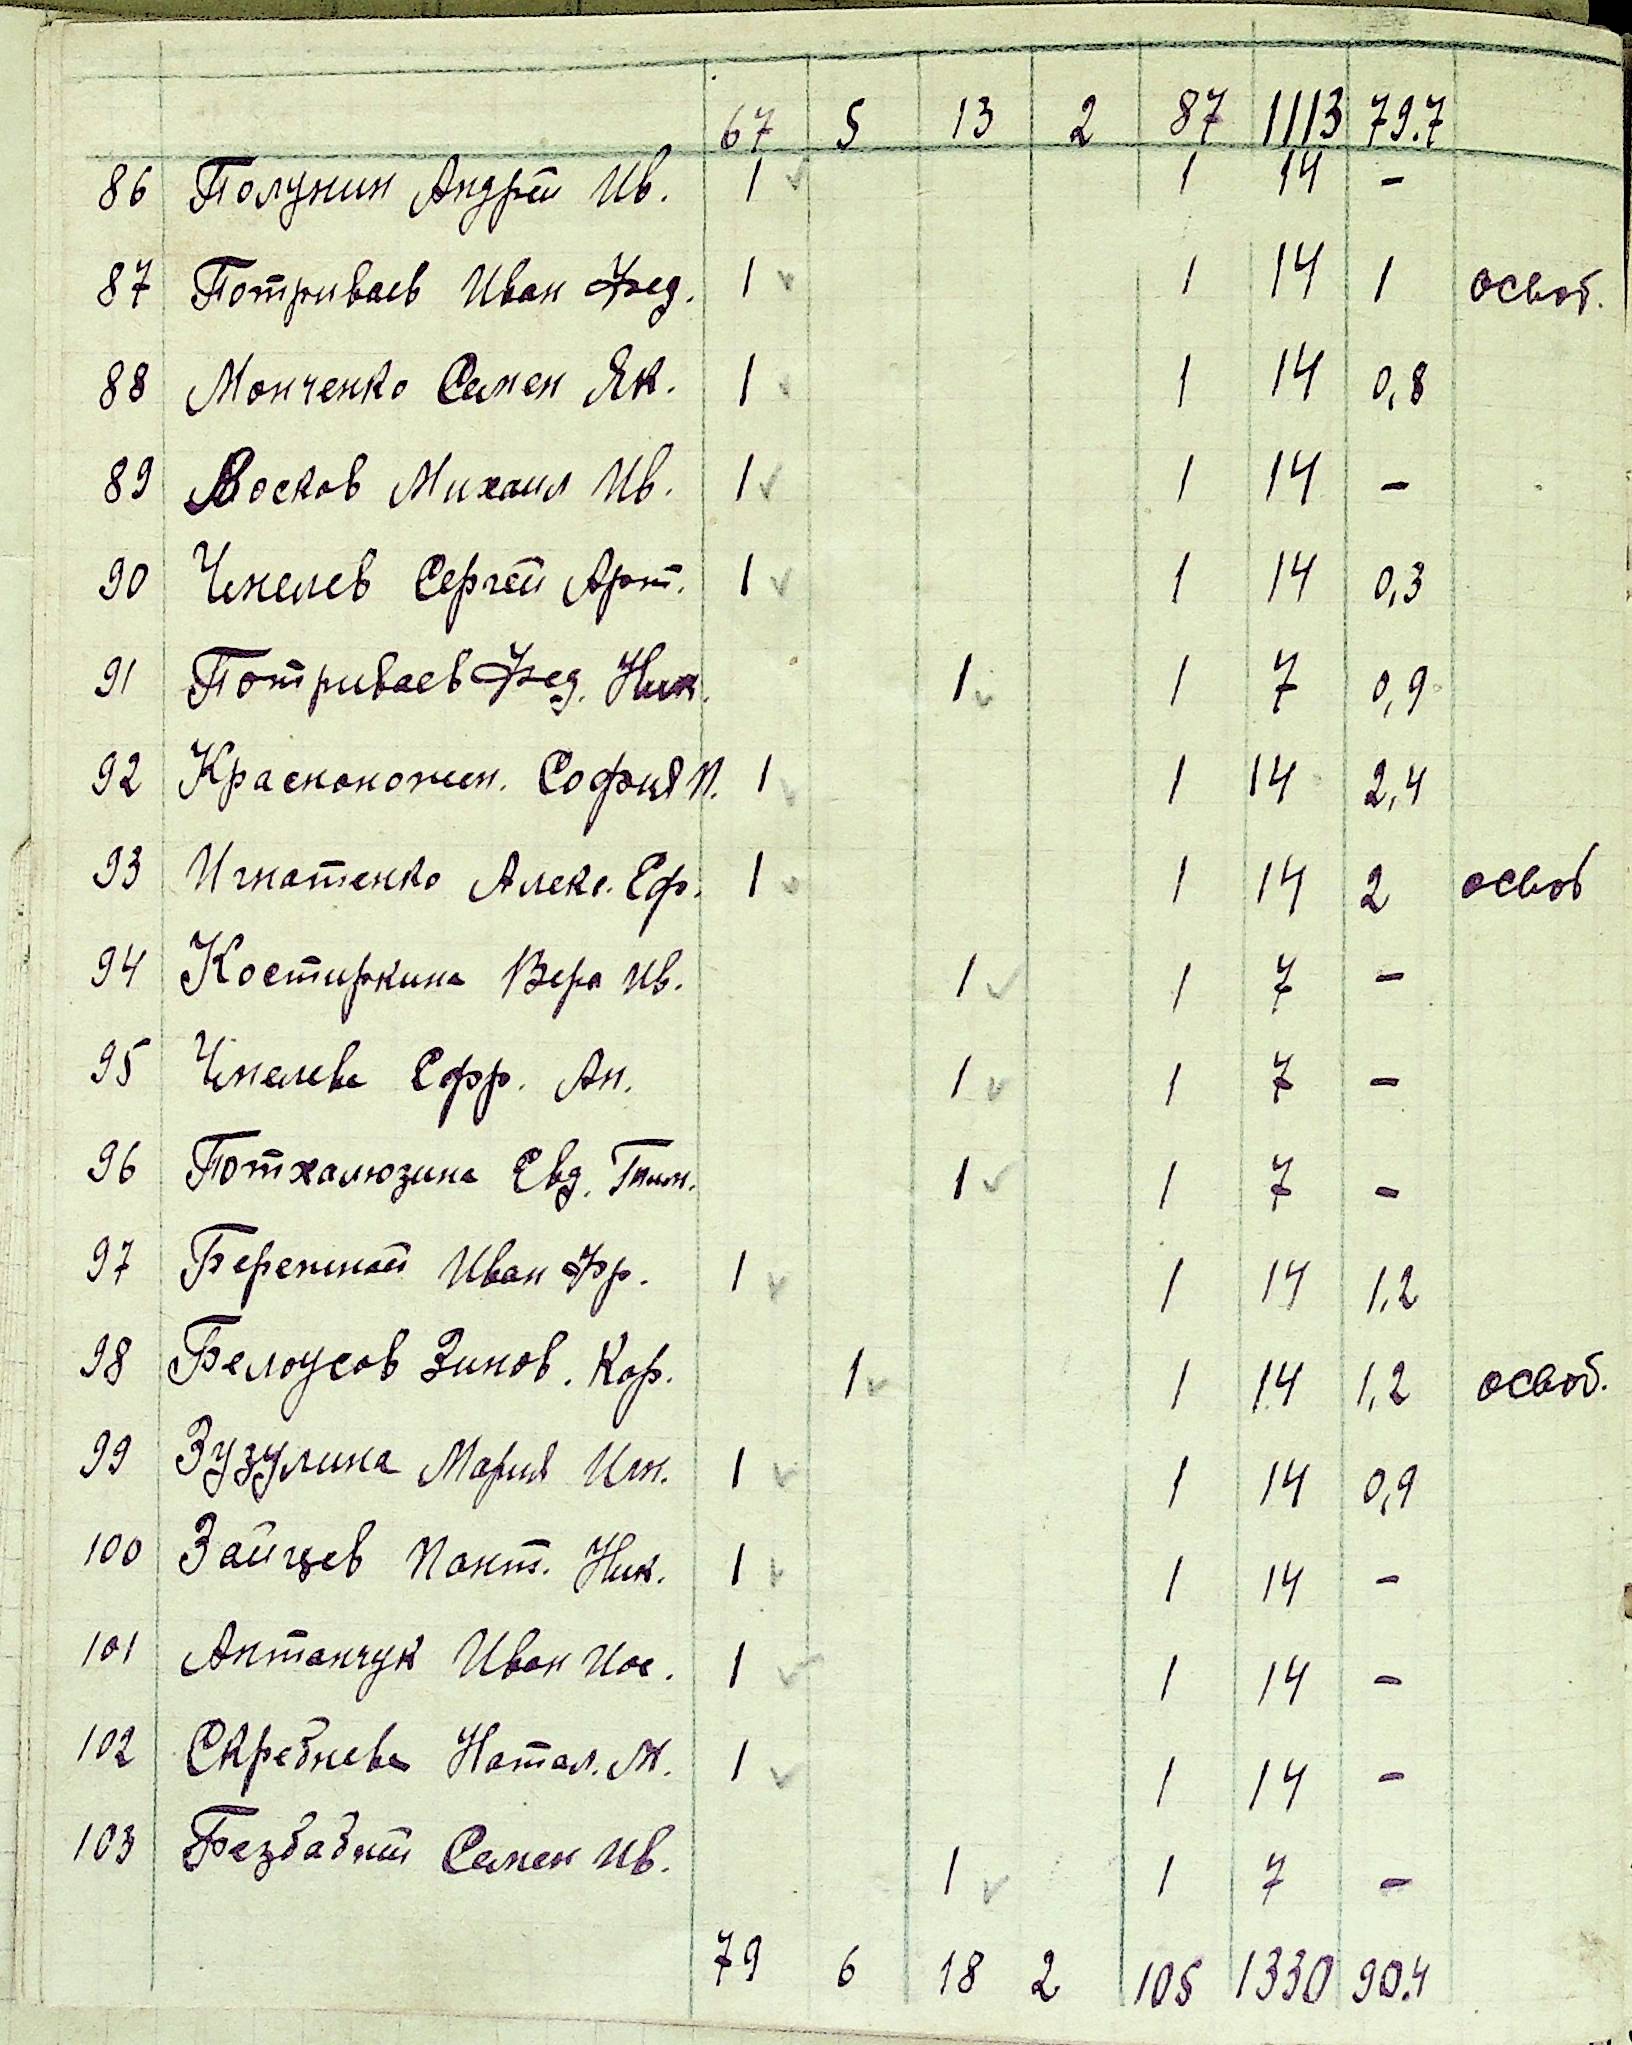 67 5 13 2 87 1113 79.7
86 Полунин Андрей Ив. 1 1 14 –
87 Потриваев Иван Фед. 1 1 14 1 освоб.
88 Монченко Семен Як. 1 1 14 0,8
89 Восков Михаил Ив. 1 1 14 –
90 Чмелев Сергей Арт. 1 1 14 0,3
91 Потриваев Фед. Ник. 1 1 7 0,9
92 Краснокотен. София П. 1 1 14 2,4
93 Игнатенко Алекс. Еф. 1 1 14 2 освоб
94 Костиркина Вера Ив. 1 1 7 –
95 Чмелева Ефр. Ан. 1 1 7 –
96 Потхалюзина Евд. Тим. 1 1 7 –
97 Бережной Иван Фр. 1 1 14 1,2
98 Белоусов Зинов. Кор. 1 1 14 1,2 освоб.
99 Зузулина Мария Игн. 1 1 14 0,9
100 Зайцев Пант. Ник. 1 1 14 –
101 Антончук Иван Иос. 1 1 14 –
102 Скребнева Натал. М. 1 1 14 –
103 Безбабний Семен Ив. 1 1 7 –
79 6 18 2 105 1330 90.4